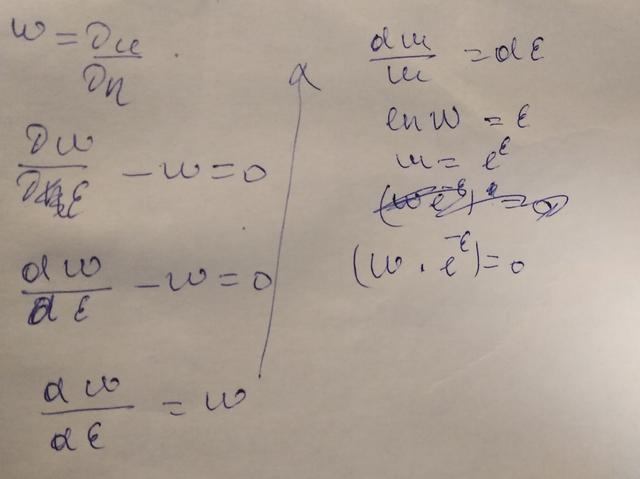 w = ∂u/∂η .
∂w/∂ε - w = 0
dw/dε - w = 0
dw/dε = w
dw/w = dε
ln w = ε
w = e^ε
(w · e^-ε) = 0